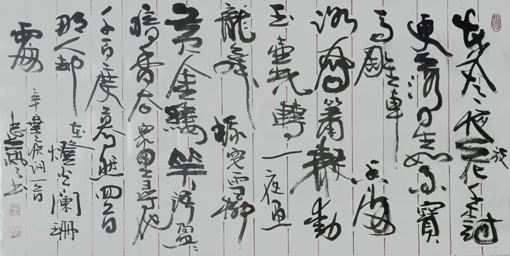 東風夜放花千树
更吹落星如雨寶
馬雕車香滿
路鳳簫聲動
玉壺光轉一夜魚
龍舞蛾兒雪柳
黄金縷笑語盈盈
暗香去眾里尋他
千百度驀然回首
那人却在燈火闌珊
處
辛棄疾詞一首